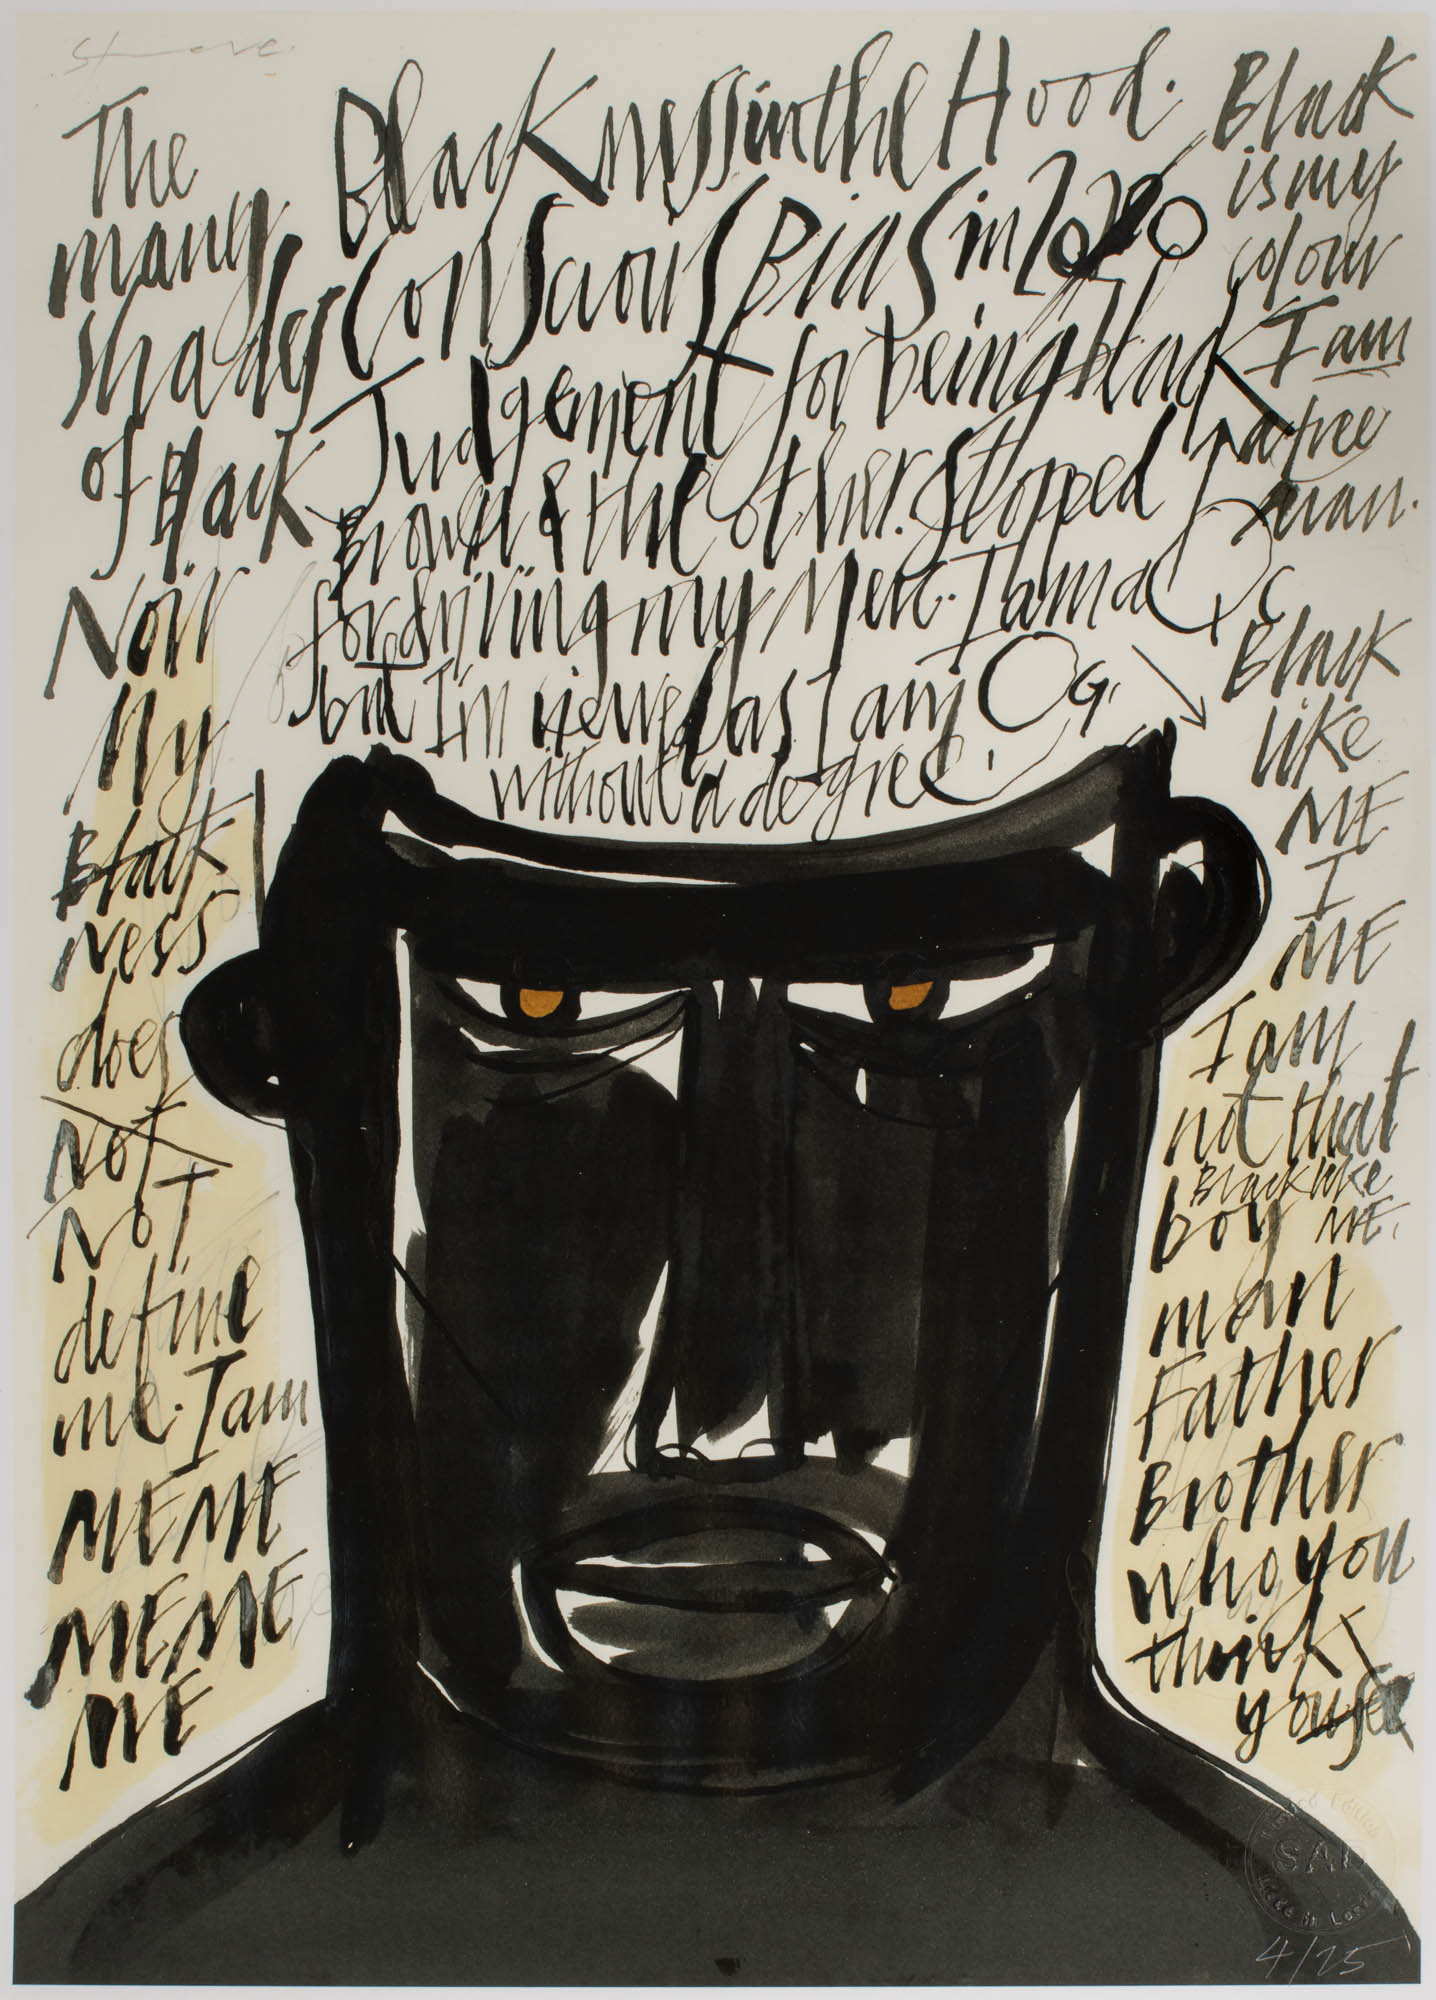 The
many
Shades
of Black
Noir
My
Black
ness
does
Not
NOT
define
me. I am
MEME
MEME
ME
Blackness in the Hood.
Conscious Bias in 2020
Judgement for being black
Brown & the other. Stopped
for driving my Merc. I am a Qc
but I'm viewed as I am OG.
without a degree.
Black
is my
colour
I am
a free
man.
Black
like
ME
I
ME
I am
not that
Black like
boy ME.
man
Father
Brother
who you
think
you see
Limited Edition
SAD
Made in London
4/25